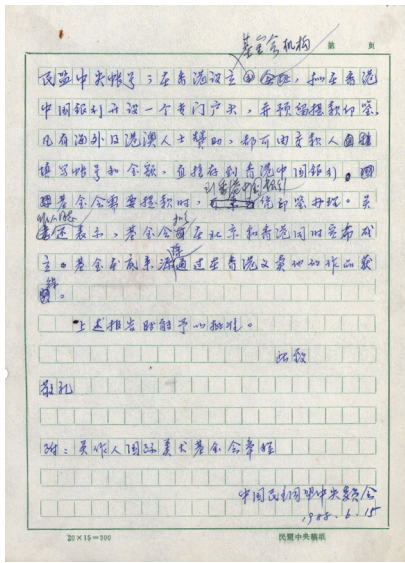 基金会机构
第 页
民盟中央帐号;在香港设立 ,拟在香港
中国银行开设一个专门户头,并预留提款印鉴。
凡有海外及港澳人士赞助,都可由交款人
填写帐号和金额,直接存到香港中国银行。
到香港中国银行
基金会需要提款时, 凭印鉴办理。吴
作人同志
还表示,基金会拟在北京和香港同时宣布成
立。基金会 来源 通过在香港义卖他的作品获
得。
上述报告盼能予以批准。
此致
敬礼
附:吴作人国际美术基金会章程
中国民主同盟中央委员会
1988.6.15
20×15=300
民盟中央稿纸